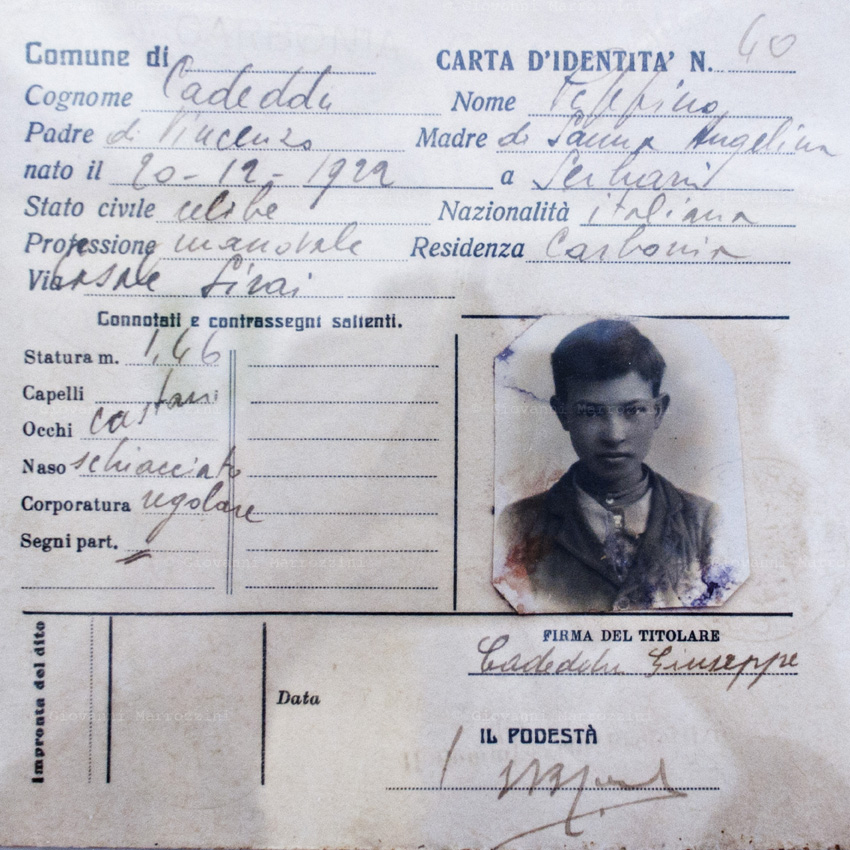 Comune di CARTA D'IDENTITA' N. 40
Cognome Cadeddu Nome
Padre di Vincenzo Madre di Sanna Angelina
nato il 20-12-1922 a
Stato civile celibe Nazionalità italiana
Professione manovale Residenza Carbonia
Via Sirai
Connotati e contrassegni salienti.
Statura m. 1,46
Capelli castani
Occhi
Naso schiacciato
Corporatura regolare
Segni part.
Impronta del dito
Data
FIRMA DEL TITOLARE
Cadeddu Giuseppe
IL PODESTÀ
© Giovanni Marrozzini